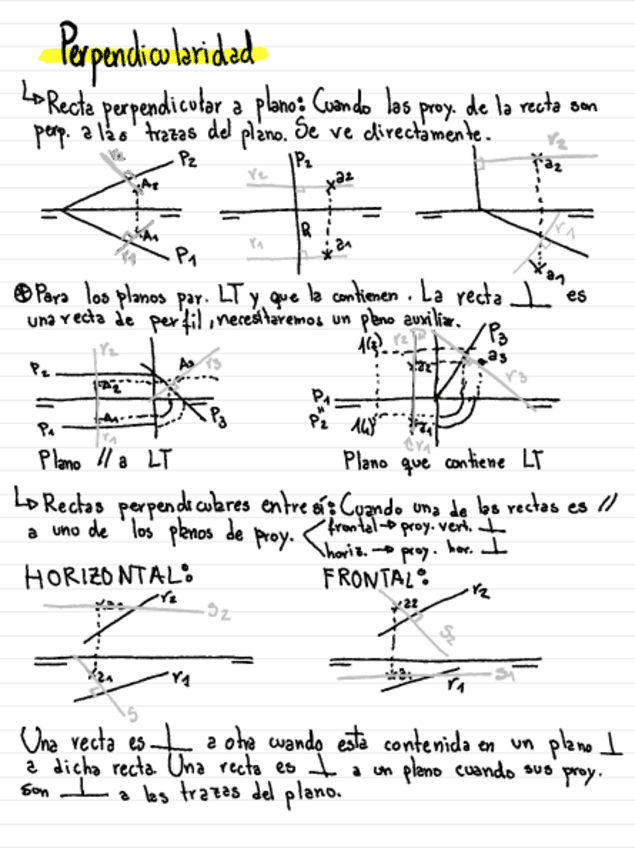 Perpendicularidad
↳ Recta perpendicular a plano: Cuando las proy. de la recta son
perp. a las trazas del plano. Se ve directamente.
r2 P2 A2 A1 r1 P1
P2 r2 a2 R r1 a1
r2 a2 r1 a1
⊕ Para los planos par. LT y que la contienen. La recta ⊥ es
una recta de perfil, necesitaremos un plano auxiliar.
r2 P2 A2 A3 r3 A1 P1 r1 P3
1(2) r2 P3 a3 a2 r3 P1 P2 1(1) a1 r1
Plano // a LT
Plano que contiene LT
↳ Rectas perpendiculares entre sí: Cuando una de las rectas es //
a uno de los planos de proy.
frontal → proy. vert. ⊥
horiz. → proy. hor. ⊥
HORIZONTAL:
FRONTAL:
r2 s2 a1 r1 s
a2 r2 s2 s1 r1
Una recta es ⊥ a otra cuando está contenida en un plano ⊥
a dicha recta. Una recta es ⊥ a un plano cuando sus proy.
son ⊥ a las trazas del plano.